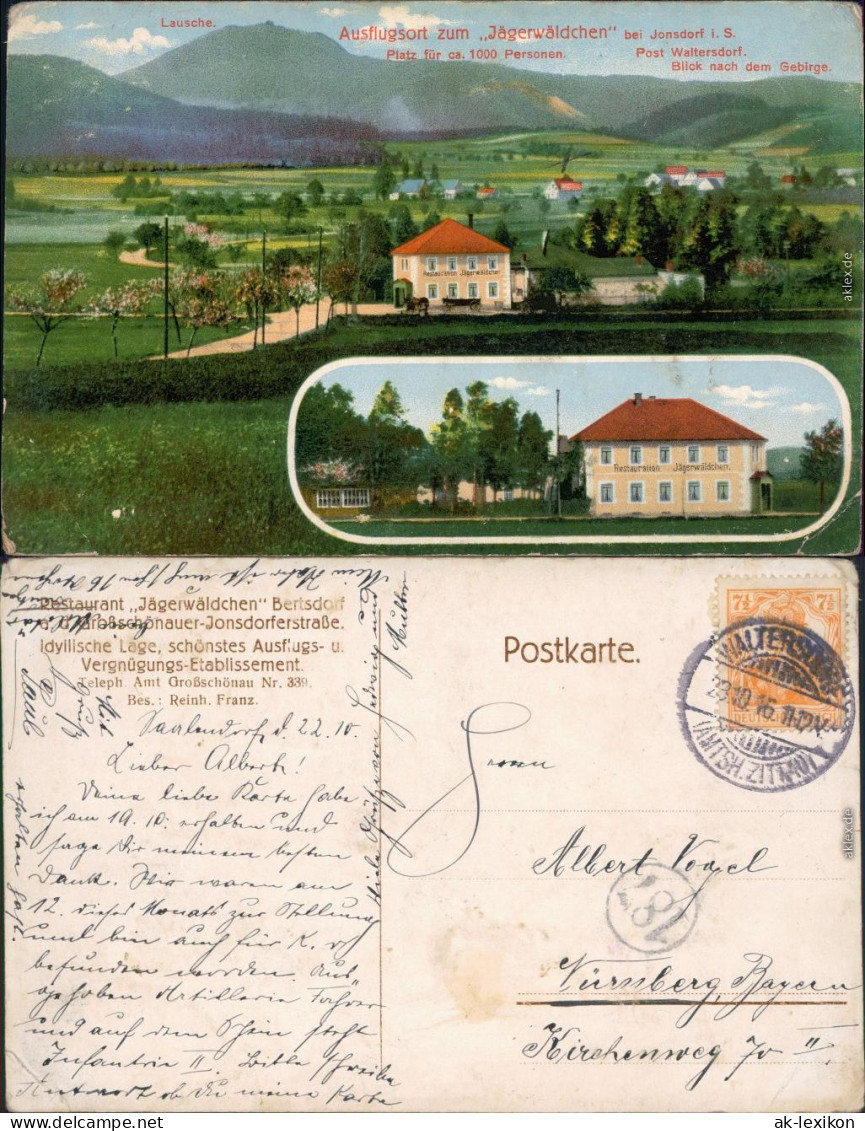 Lausche.
Ausflugsort zum „Jägerwäldchen" bei Jonsdorf i. S.
Platz für ca. 1000 Personen. Post Waltersdorf.
Blick nach dem Gebirge.
Restauration Jägerwäldchen
Restauration Jägerwäldchen.
aklex.de
Restaurant „Jägerwäldchen" Bertsdorf
a. d. Großschönauer-Jonsdorferstraße.
Idyllische Lage, schönstes Ausflugs- u.
Vergnügungs-Etablissement.
Teleph. Amt Großschönau Nr. 339.
Bes.: Reinh. Franz.
Postkarte.
7½ 7½
DEUTSCHES
WALTERSDORF
23.10.16. 11-12V.
(AMTSH. ZITTAU)
Saalendorf, d. 22.10.
Lieber Albert!
Deine liebe Karte habe
ich am 19.10. erhalten und
sage Dir meinen besten
Dank. Wir waren am
12. dieses Monats zur Stellung
und bin auch für K. v.
befunden worden. Aus-
gehoben Artillerie Fahrer
und auf dem Schein steht
Infantrie II. Bitte schreibe
Antwort ob du meine Karte
erhalten hast.
Mit
Gruß
Paul
Viele Grüße von und
Mutter
Mein Vater ist auch schon 16
Herrn
Albert Vogel
Nürnberg, Bayern
Kirchenweg 70 II.
182
aklex.de
ak-lexikon